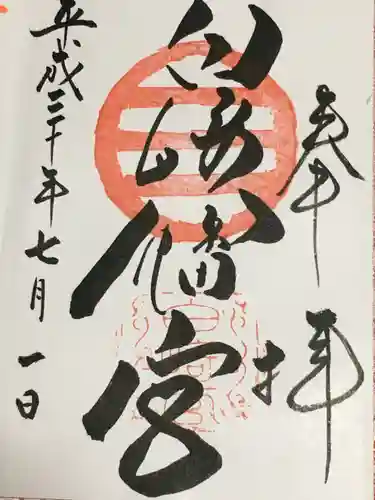 奉拝
八幡宮
平成三十年七月一日